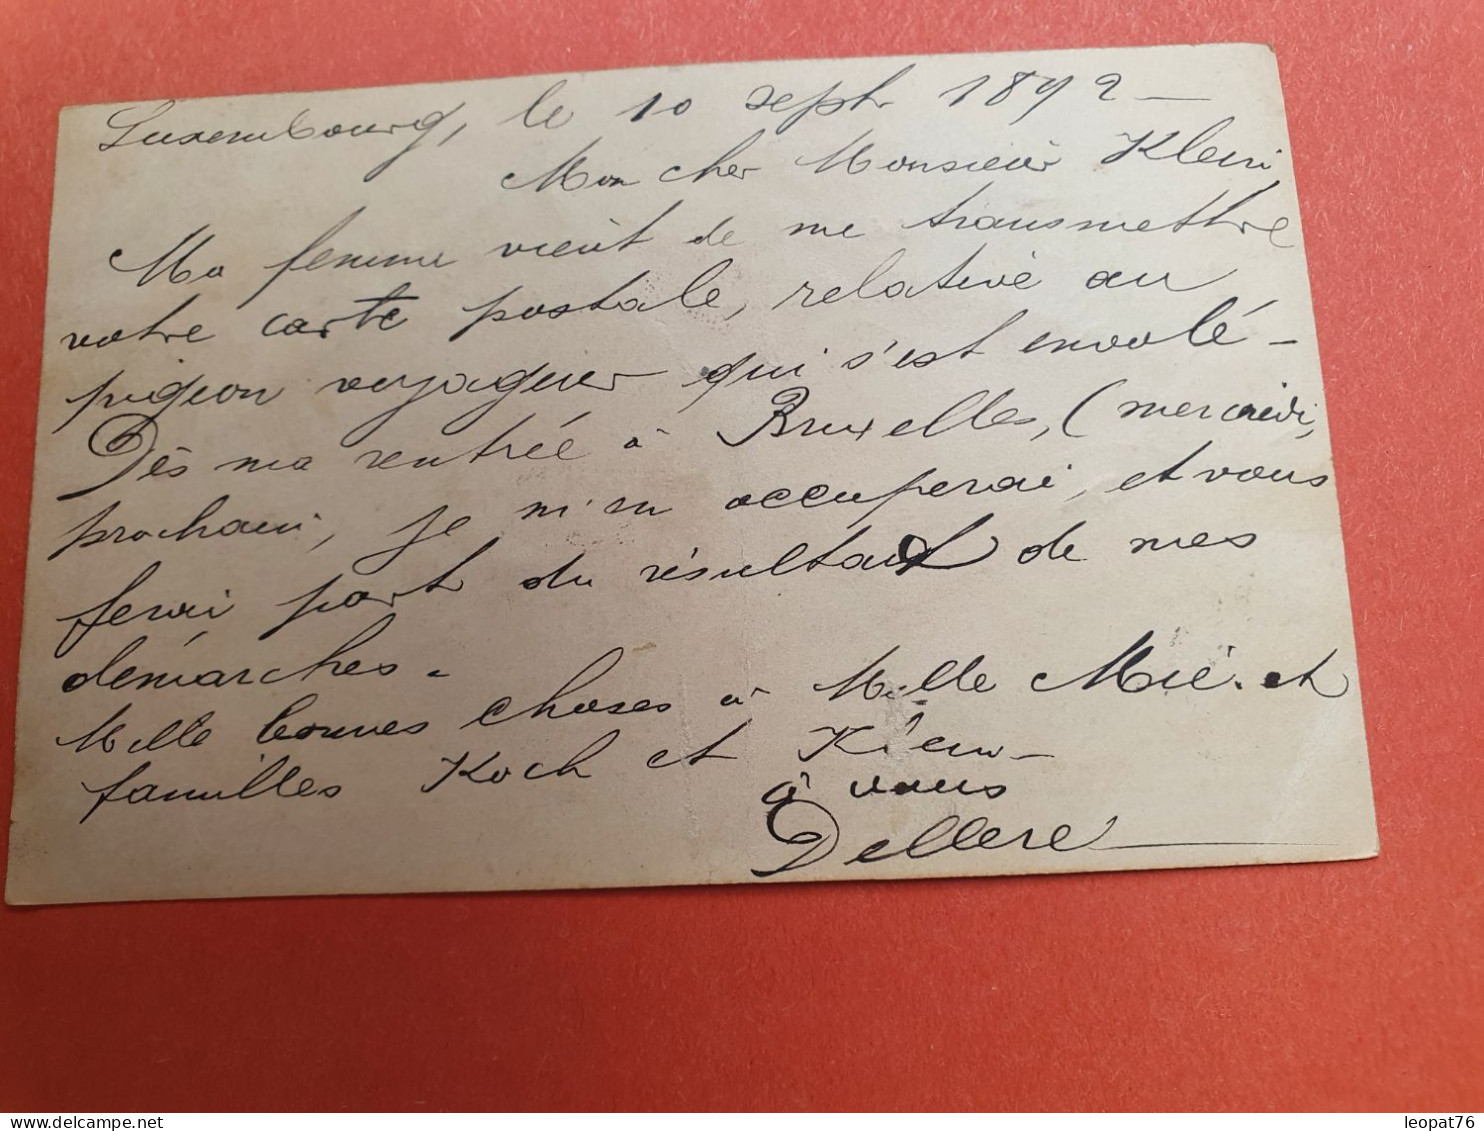 Luxembourg, le 10 septr 1892 —
Mon cher Monsieur Klein
Ma femme vient de me transmettre
votre carte postale, relative au
pigeon voyageur qui s'est envolé –
Dès ma rentrée à Bruxelles, (mercredi,
prochain, je m'en occuperai, et vous
ferai part du résultat de mes
démarches.
Mille bonnes choses à Melle et
familles Koch et Klein –
à vous
Dellere
leopat76